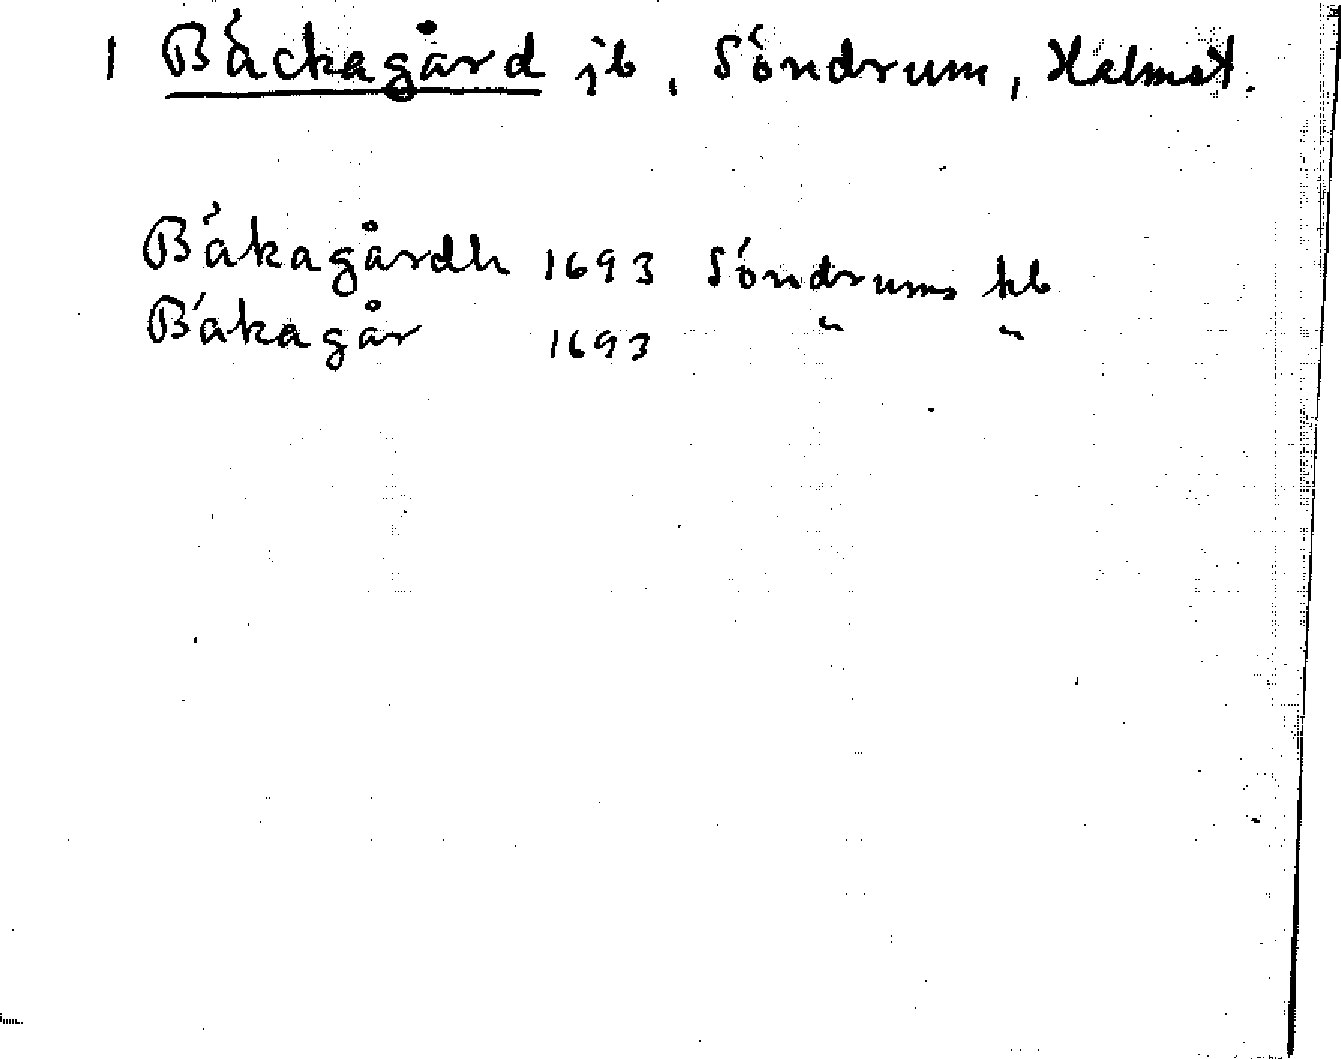 1 Bäckagård jb, Söndrum, Halmst.
Bäkagårdh 1693 Söndrums kb
Bäkagår 1693 " "